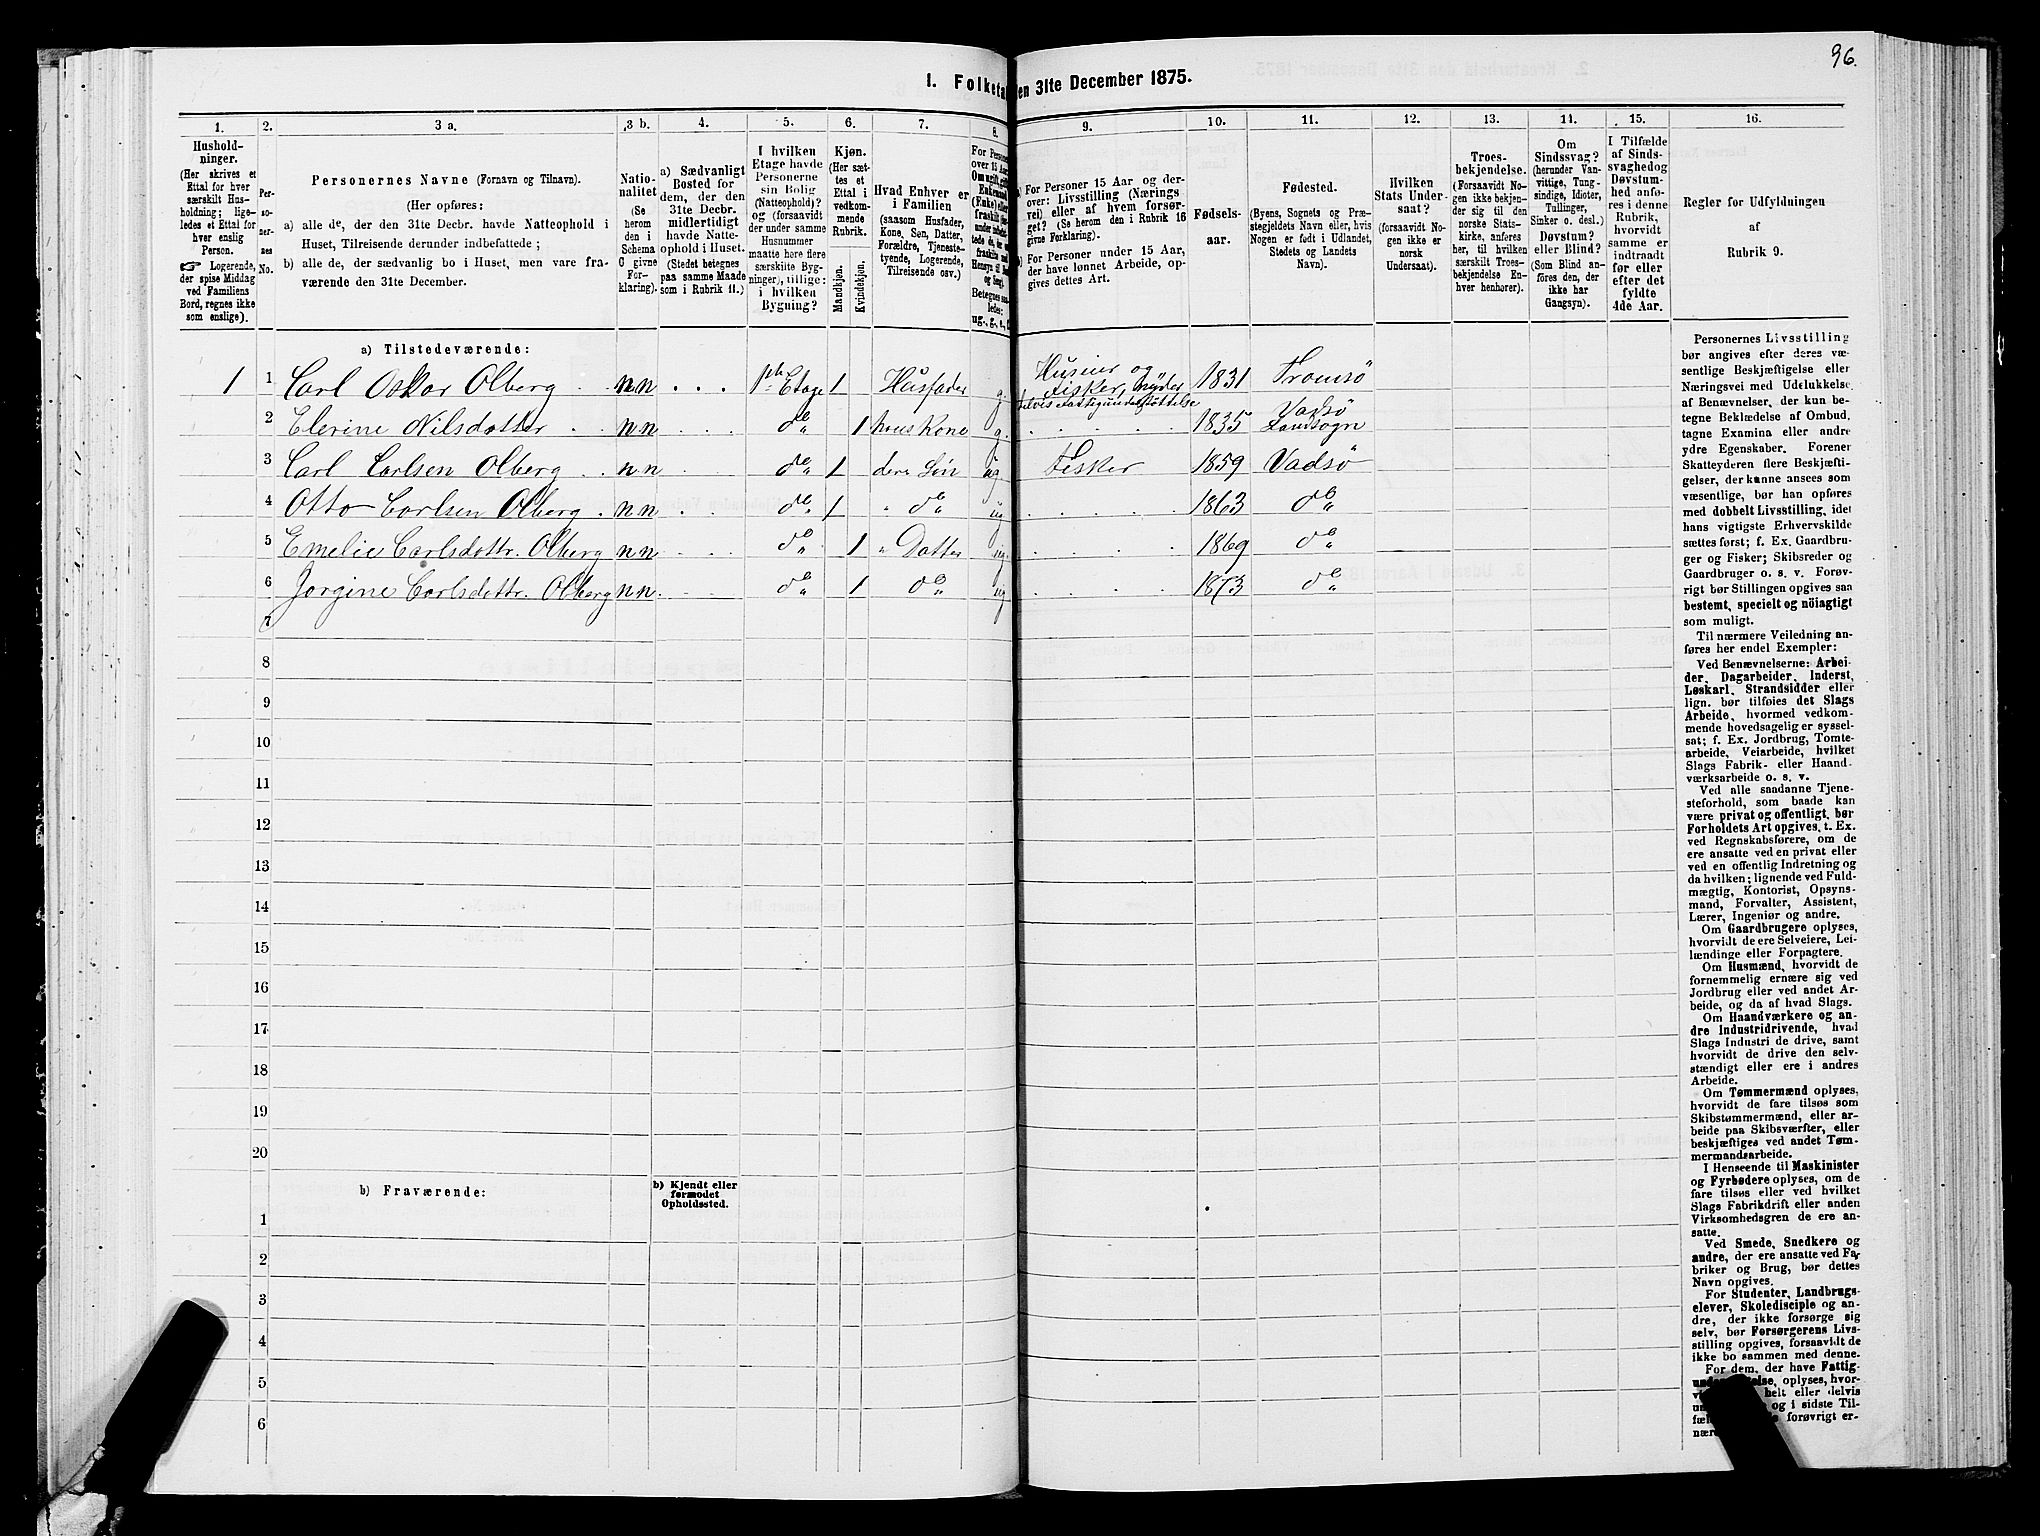 96.
1. Folketal den 31te December 1875.
1. 2. 3 a. 3 b. 4. 5. 6. 7. 8. 9. 10. 11. 12. 13. 14. 15. 16.
Hushold-
ninger.
(Her skrives et
Ettal for hver
særskilt Hus-
holdning; lige-
ledes et Ettal for
hver enslig
Person.
☞ Logerende,
der spise Middag
ved Familiens
Bord, regnes ikke
som enslige).
Per-
so-
ner-
nes
No.
Personernes Navne (Fornavn og Tilnavn).
(Her opføres:
a) alle de, der den 31te Decbr. havde Natteophold i
Huset, Tilreisende derunder indbefattede;
b) alle de, der sædvanlig bo i Huset, men vare fra-
værende den 31te December.
Natio-
nalitet
(Se
herom
den i
Schema
C givne
For-
klaring).
a) Sædvanligt
Bosted for
dem, der den
31te Decbr.
midlertidigt
havde Natte-
ophold i Huset.
(Stedet betegnes
paa samme Maade
som i Rubrik 11.)
I hvilken
Etage havde
Personerne
sin Bolig
(Natteophold)?
og (forsaavidt
der under samme
Husnummer
maatte høre flere
særskilte Byg-
ninger), tillige:
i hvilken
Bygning?
Kjøn.
(Her sæt-
tes et
Ettal i
vedkom-
mende
Rubrik.
Mandkjøn.
Kvindekjøn.
Hvad Enhver er
i Familien
(saasom Husfader,
Kone, Søn, Datter,
Forældre, Tjeneste-
tyende, Logerende,
Tilreisende osv.)
For Personer
over 15 Aar
Om ugift, gift,
Enkemand
(Enke) eller
fraskilt
Betegnes saa-
ledes:
ug., g., e., f.
a) For Personer 15 Aar og der-
over: Livsstilling (Nærings-
vei) eller af hvem forsør-
get? (Se herom den i Rubrik 16
givne Forklaring).
b) For Personer under 15 Aar,
der have lønnet Arbeide, op-
gives dettes Art.
Fødsels-
aar.
Fødested.
(Byens, Sognets og Præ-
stegjeldets Navn eller, hvis
Nogen er født i Udlandet,
Stedets og Landets
Navn).
Hvilken
Stats Under-
saat?
(forsaavidt No-
gen ikke er
norsk
Undersaat).
Troes-
bekjendelse.
(Forsaavidt No-
gen ikke bekjen-
der sig til den
norske Stats-
kirke, anføres
her, til hvilken
særskilt Troes-
bekjendelse En-
hver henhører).
Om
Sindssvag?
(herunder Van-
vittige, Tung-
sindige, Idioter,
Tullinger,
Sinker o. desl.)
Døvstum?
eller Blind?
(Som Blind an-
føres den, der
ikke har
Gangsyn).
I Tilfælde
af Sinds-
svaghed og
Døvstum-
hed anfø-
res i denne
Rubrik,
hvorvidt
samme er
indtraadt
før eller
efter det
fyldte
4de Aar.
Regler for Udfyldningen
af
Rubrik 9.
a) Tilstedeværende:
1 1 Carl Oskar Olberg nn 1ste Etage 1 Husfader g. Huseier og Fisker, nyder delvis Fattigunderstøttelse 1831 Tromsø
2 Elerine Nilsdatter nn do 1 hans Kone g. 1835 Vadsø Landsogn
3 Carl Carlsen Olberg nn do 1 dere Søn ug Fisker 1859 Vadsø
4 Otto Carlsen Olberg nn do 1 " do ug 1863 do
5 Emelie Carlsdattr. Olberg nn do 1 " Datter ug. 1869 do
6 Jorgine Carlsdattr. Olberg nn do 1 do ug 1873 do
7
8
9
10
11
12
13
14
15
16
17
18
19
20
b) Fraværende:
b) Kjendt eller
formodet
Opholdssted.
1
2
3
4
5
6
Personernes Livsstilling
bør angives efter deres væ-
sentlige Beskjæftigelse eller
Næringsvei med Udelukkelse
af Benævnelser, der kun be-
tegne Beklædelse af Ombud,
tagne Examina eller andre
ydre Egenskaber. Forener
Skatteyderen flere Beskjæfti-
gelser, der kunne ansees som
væsentlige, bør han opføres
med dobbelt Livsstilling, idet
hans vigtigste Erhvervskilde
sættes først; f. Ex. Gaardbru-
ger og Fisker; Skibsreder og
Gaardbruger o. s. v. Forøv-
rigt bør Stillingen opgives saa
bestemt, specielt og nöiagtigt
som muligt.
Til nærmere Veiledning an-
føres her endel Exempler:
Ved Benævnelserne: Arbei-
der, Dagarbeider, Inderst,
Løskarl, Strandsidder eller
lign. bør tilføies det Slags
Arbeide, hvormed vedkom-
mende hovedsagelig er syssel-
sat; f. Ex. Jordbrug, Tomte-
arbeide, Veiarbeide, hvilket
Slags Fabrik- eller Haand-
værksarbeide o. s. v.
Ved alle saadanne Tjene-
steforhold, som baade kan
være privat og offentligt, bør
Forholdets Art opgives, t. Ex.
ved Regnskabsførere, om de
ere ansatte ved en privat eller
ved en offentlig Indretning og
da hvilken; lignende ved Fuld-
mægtig, Kontorist, Opsyns-
mand, Forvalter, Assistent,
Lærer, Ingeniør og andre.
Om Gaardbrugere oplyses,
hvorvidt de ere Selveiere, Lei-
lændinge eller Forpagtere.
Om Husmænd, hvorvidt de
fornemmelig ernære sig ved
Jordbrug eller ved andet Ar-
beide, og da af hvad Slags.
Om Haandværkere og an-
dre Industridrivende, hvad
Slags Industri de drive, samt
hvorvidt de drive den selv-
stændigt eller ere i andres
Arbeide.
Om Tømmermænd oplyses,
hvorvidt de fare tilsøs som
Skibstømmermænd, eller ar-
beide paa Skibsværfter, eller
beskjæftiges ved andet Tøm-
mermandsarbeide.
I Henseende til Maskinister
og Fyrbødere oplyses, om de
fare tilsøs eller ved hvilket
Slags Fabrikdrift eller anden
Virksomhedsgren de ere an-
satte.
Ved Smede, Snedkere og
andre, der ere ansatte ved Fa-
briker og Brug, bør dettes
Navn opgives.
For Studenter, Landbrugs-
elever, Skoledisciple og an-
dre, der ikke forsørge sig
selv, bør Forsørgerens Livs-
stilling opgives, forsaavidt de
ikke bo sammen med denne.
For dem, der have Fattig-
oplyses, hvor-
helt eller delvis
og i sidste Til-
forøvrigt er-